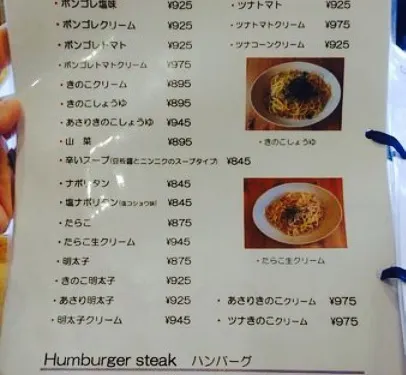 ・ボンゴレ塩味 ¥925
・ボンゴレクリーム ¥925
・ボンゴレトマト ¥925
・ボンゴレトマトクリーム ¥975
・きのこクリーム ¥895
・きのこしょうゆ ¥895
・あさりきのこしょうゆ ¥945
・山 菜 ¥895
・辛いスープ(豆板醤とニンニクのスープタイプ) ¥845
・ナポリタン ¥845
・塩ナポリタン(塩コショウ味) ¥845
・たらこ ¥875
・たらこ生クリーム ¥945
・明太子 ¥875
・きのこ明太子 ¥925
・あさり明太子 ¥925
・明太子クリーム ¥945
・ツナトマト ¥925
・ツナトマトクリーム ¥975
・ツナコーンクリーム ¥925
・きのこしょうゆ
・たらこ生クリーム
・あさりきのこクリーム ¥975
・ツナきのこクリーム ¥975
Humburger steak ハンバーグ